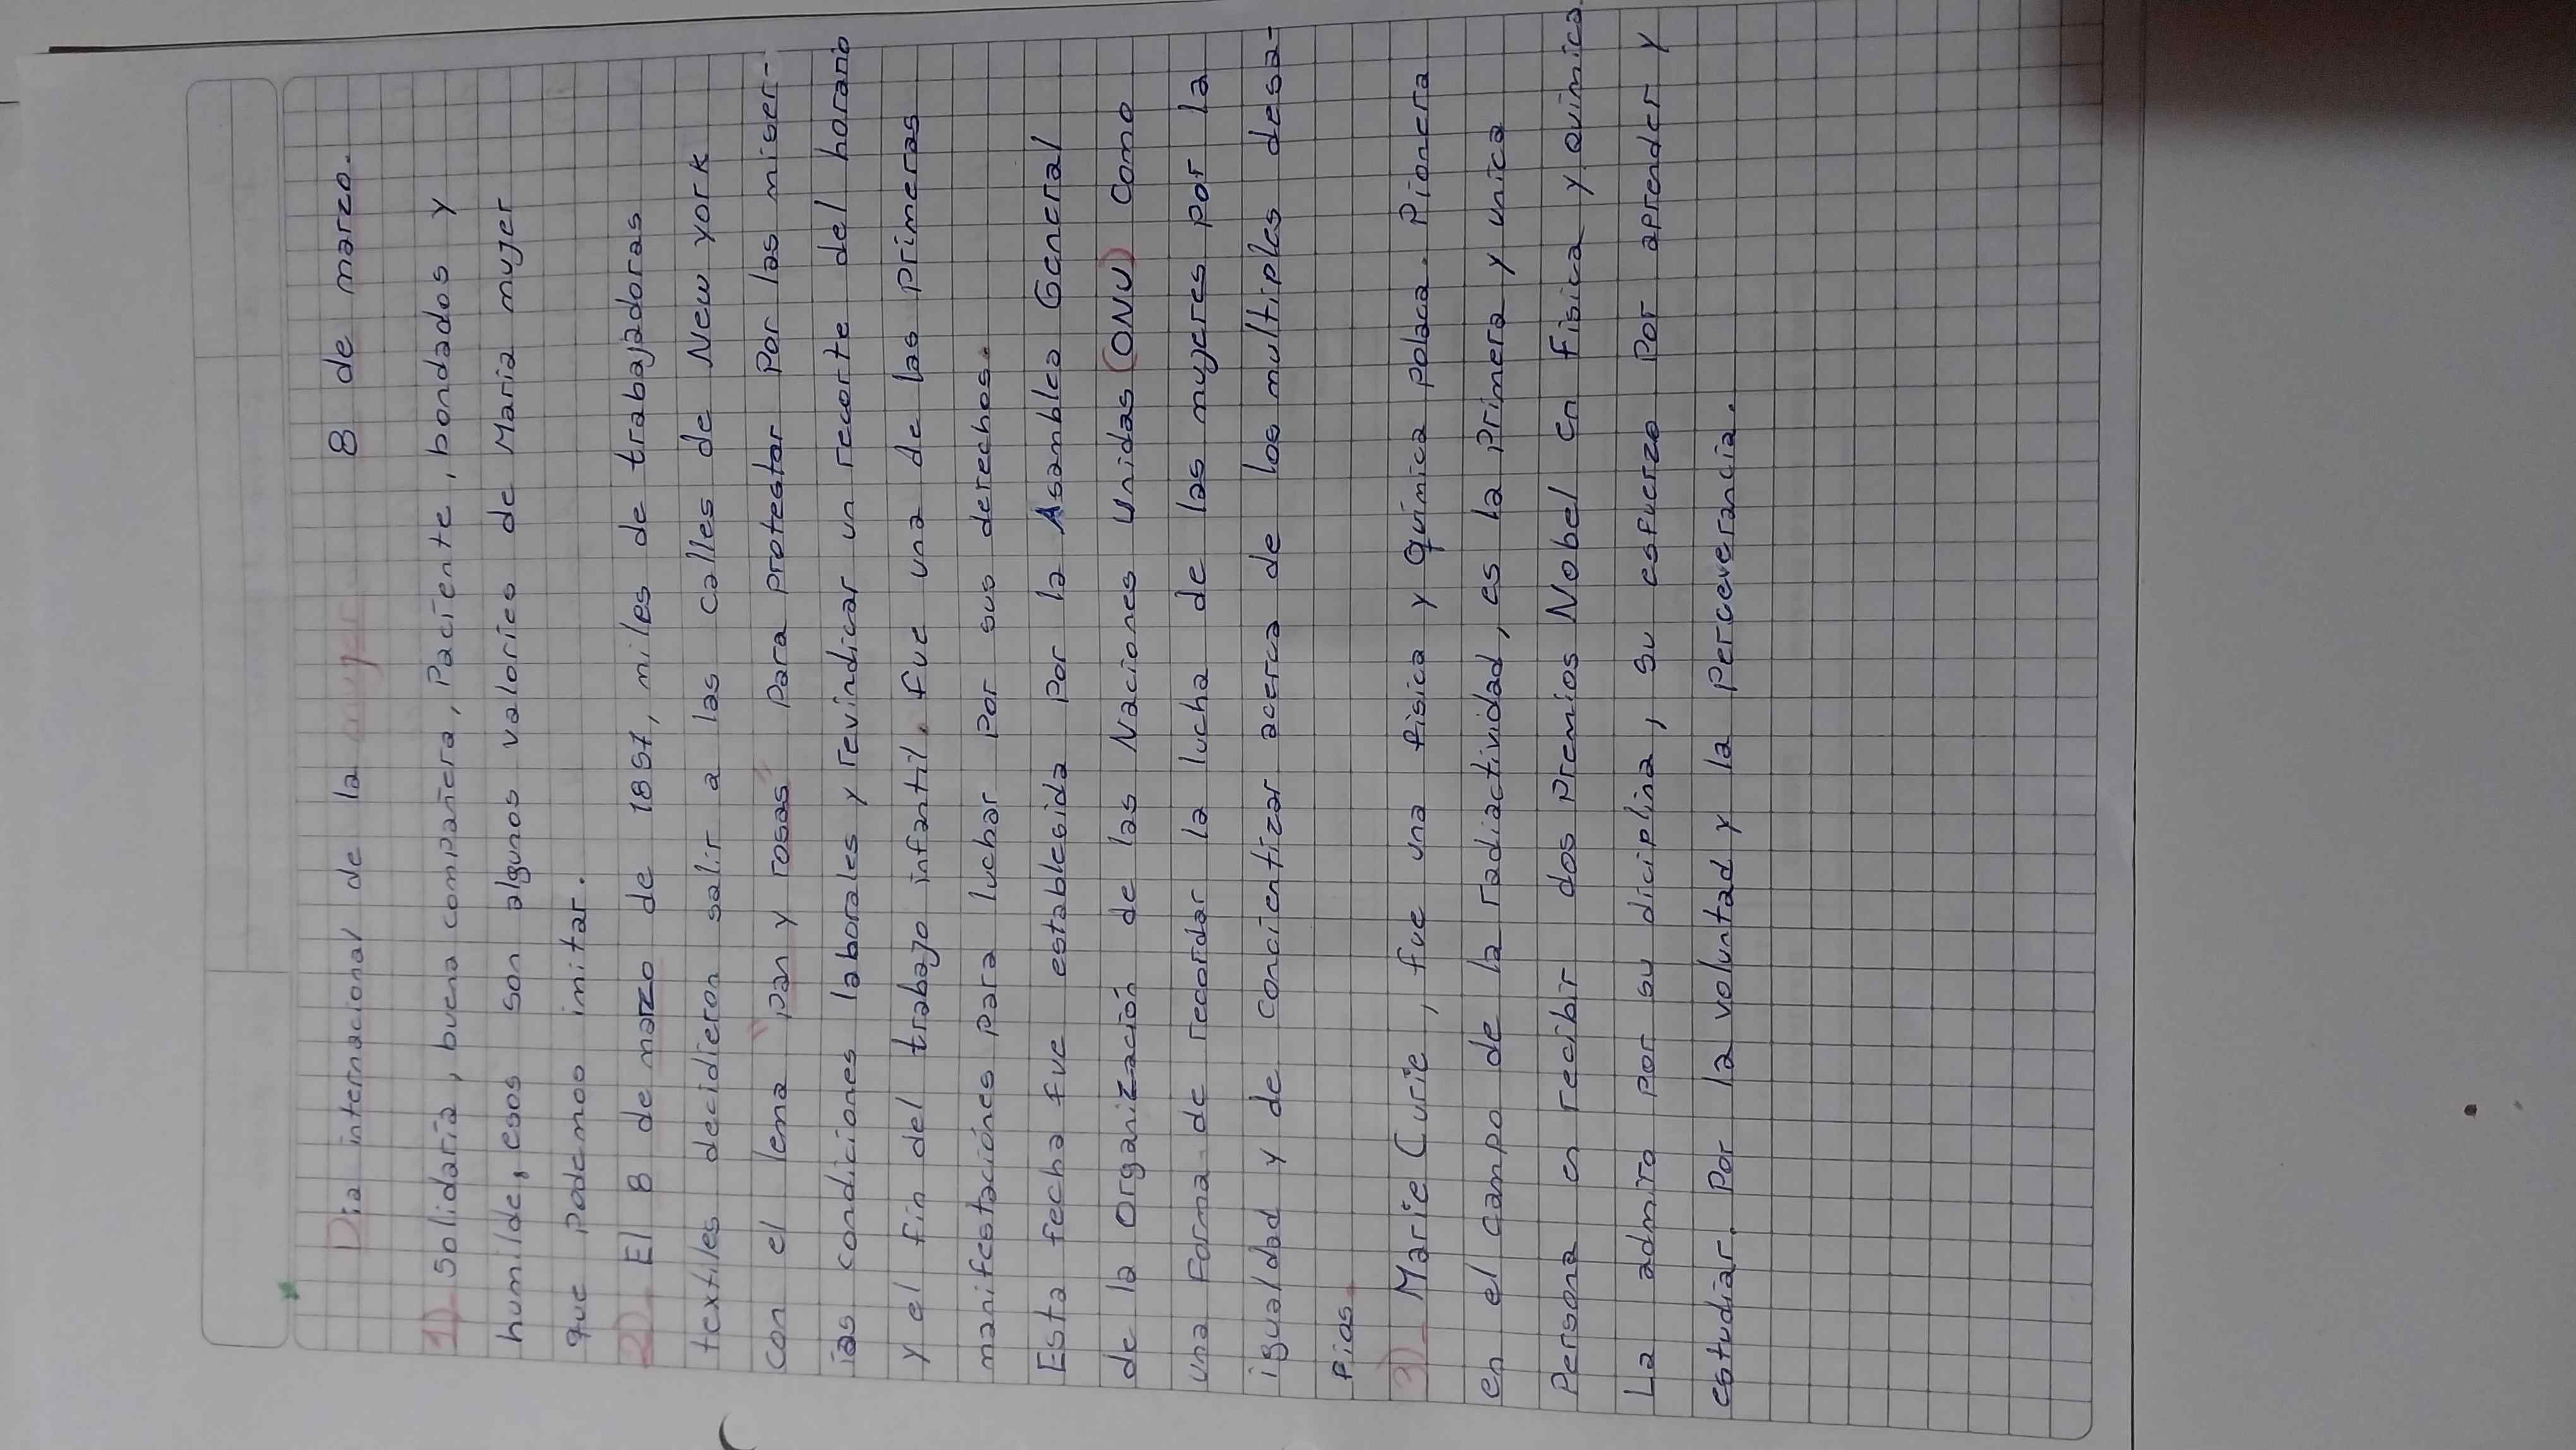 Dia internacional de la mujer 8 de marzo.
1)- Solidaria, buena compañera, Paciente, bondados y
humilde, esos son algunos valorics de Maria mujer
que podemos imitar.
2)- El 8 de marzo de 1857, miles de trabajadoras
textiles decidieron salir a las calles de New york
con el lema "pan y rosas" Para protestar Por las miser-
ias condiciones laborales y revindicar un recorte del horario
y el fin del trabajo infantil. Fue una de las primeras
manifestaciones para luchar por sus derechos.
Esta fecha fue establesida Por la Asamblea General
de la Organización de las Naciones Unidas (ONU) Como
una Forma de recordar la lucha de las mujeres por la
igualdad y de concientizar acerca de los multiples desa-
fios.
3)- Marie Curie, fue una fisica y Química polaca. Pionera
en el campo de la radiactividad, es la Primera y unica
Persona en recibir dos Premios Nobel en Fisica y quimica.
La admiro por su diciplina, su esfuerzo Por aprender y
estudiar. Por la voluntad y la Perceverancia.